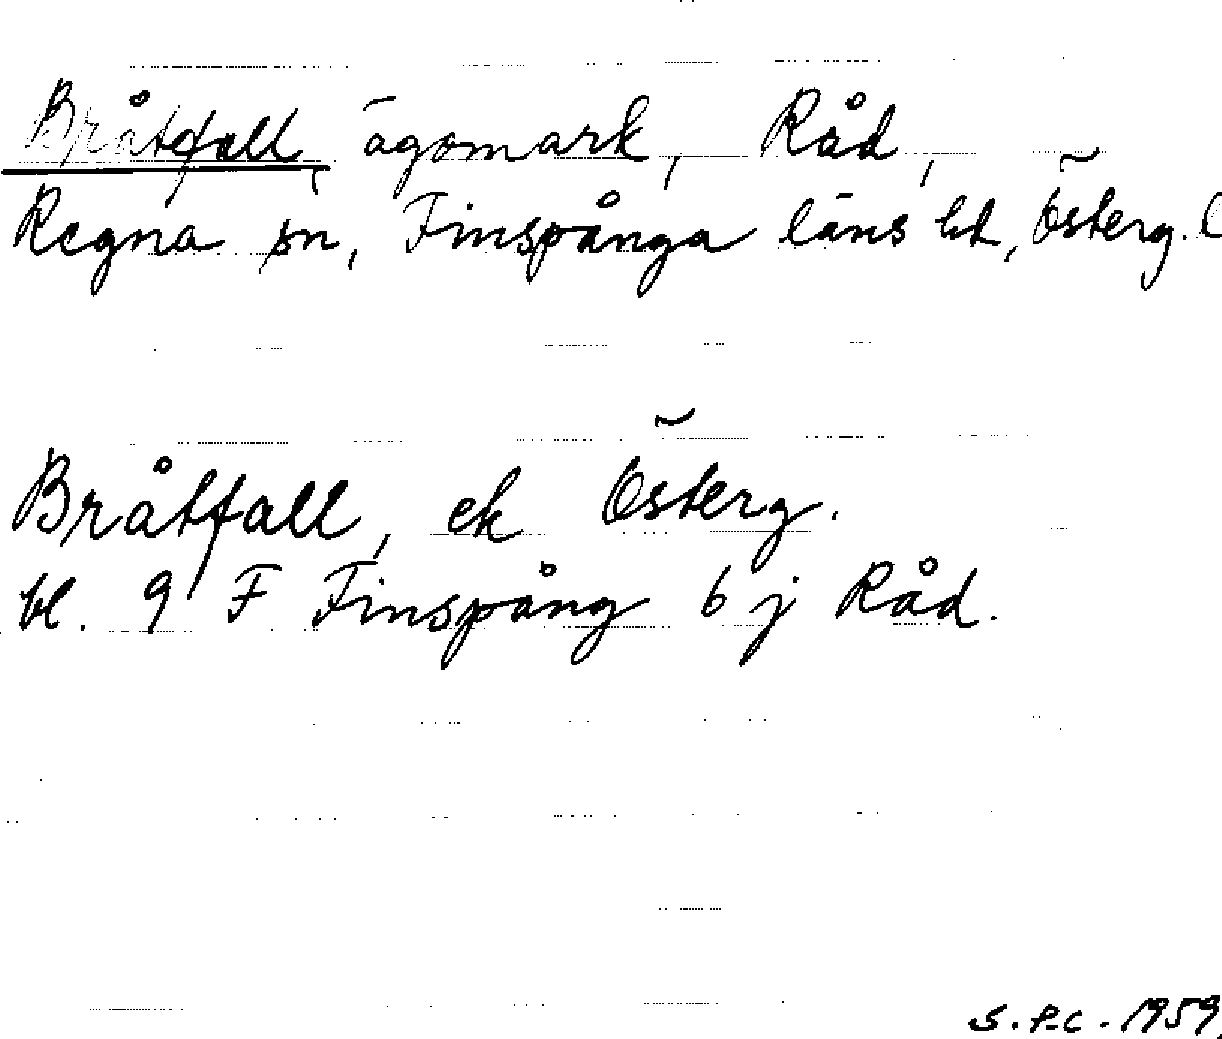 Bråtfall, ägomark, Råd,
Regna sn, Finspånga läns hd, Österg. l
Bråtfall, ek Österg.
bl. 9 F Finspång 6 j Råd.
S.P.C. 1959.